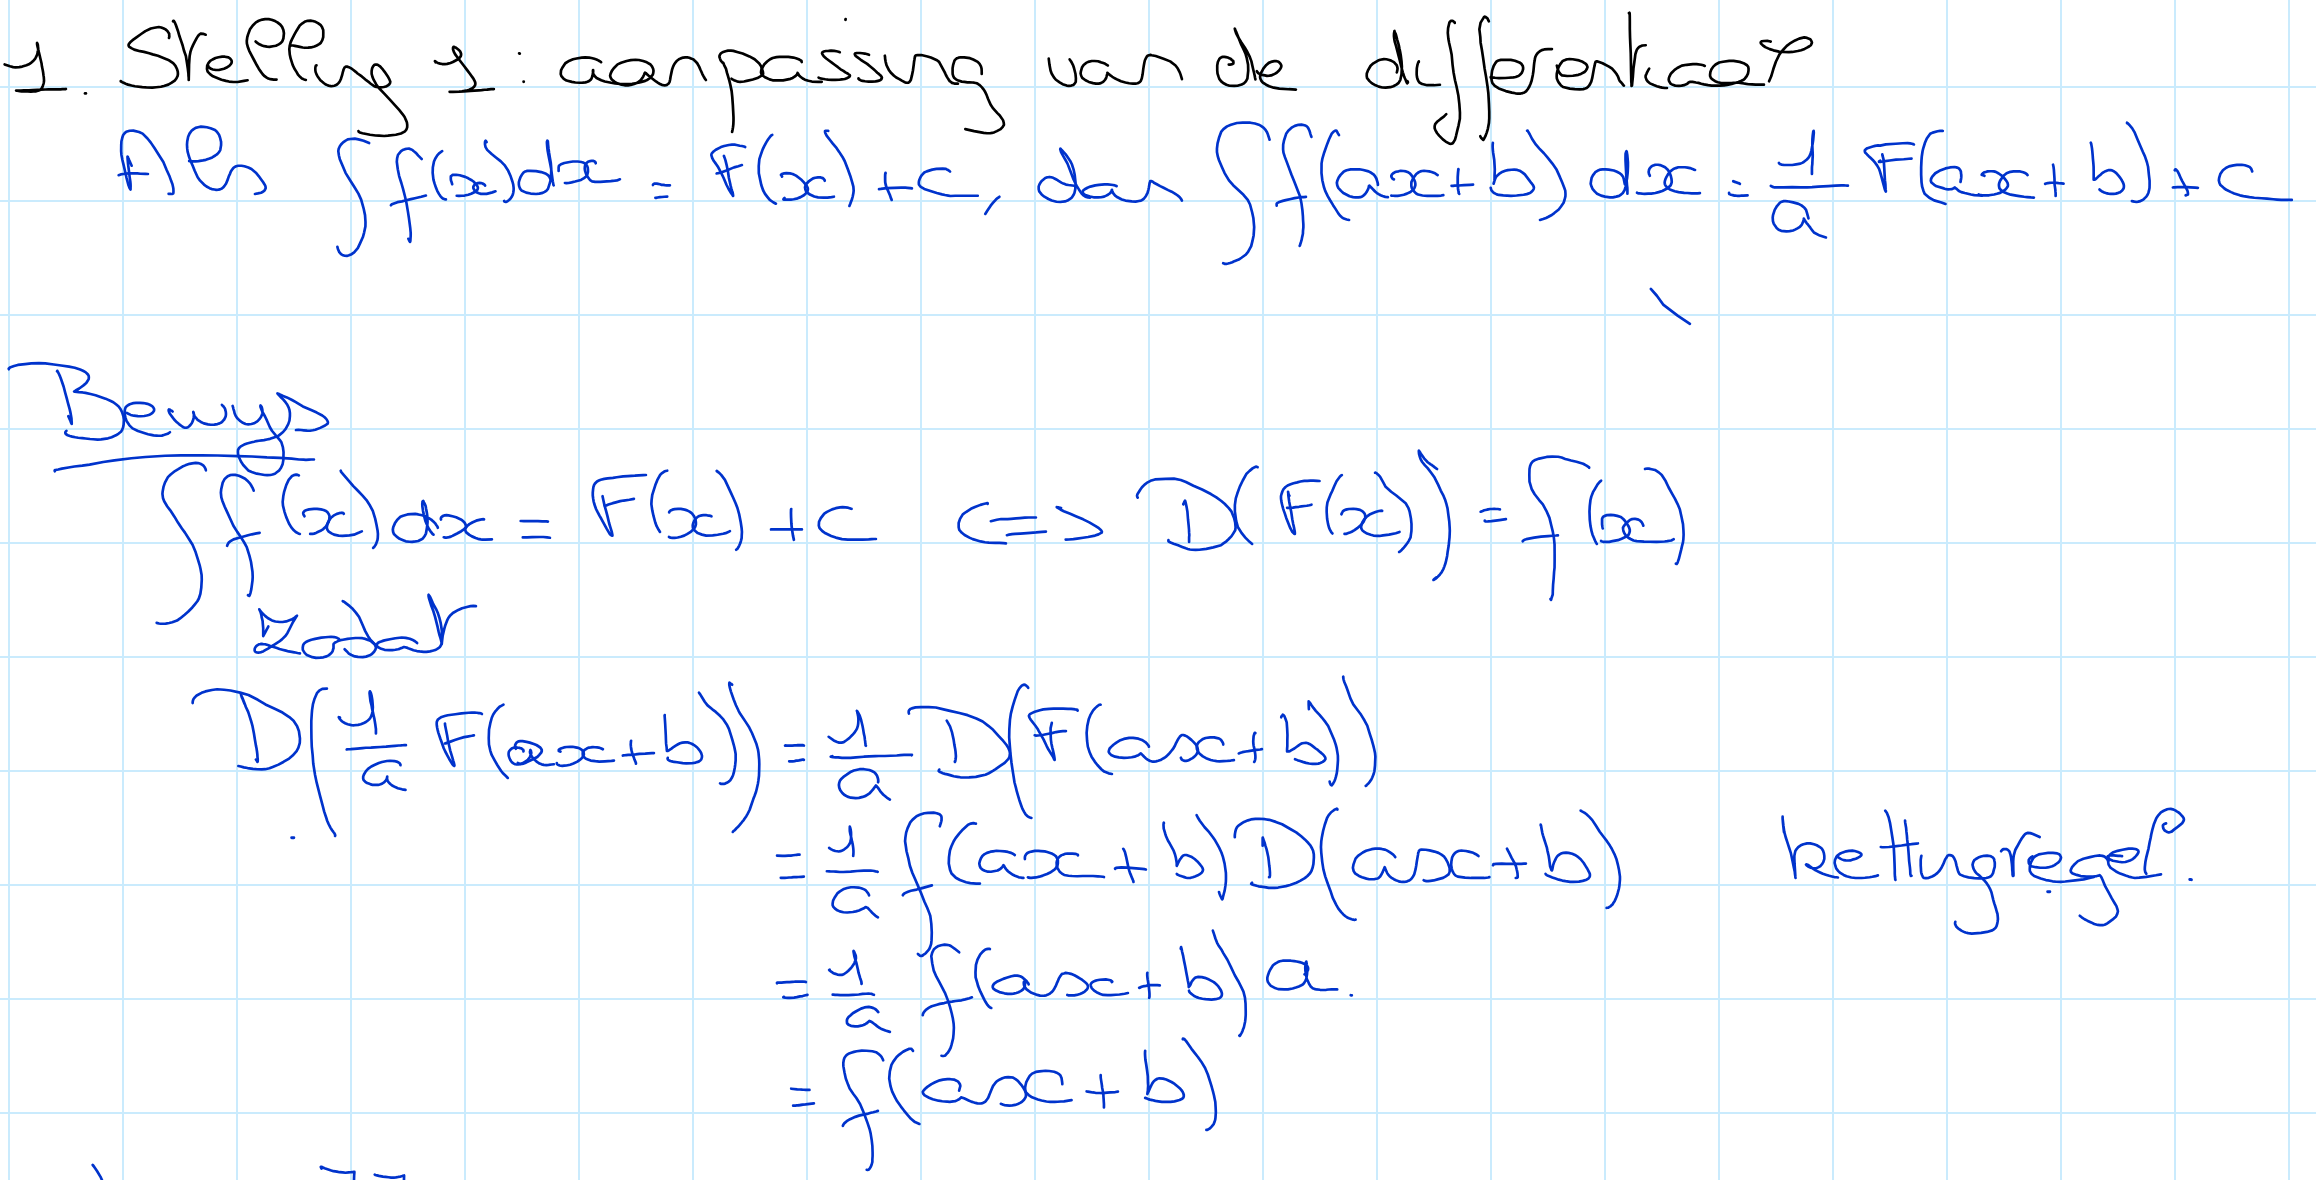 1. Stelling 1: aanpassing van de differentiaal
Als ∫f(x)dx = F(x)+c, dan ∫f(ax+b)dx = 1/a F(ax+b)+c
Bewijs
∫f(x)dx = F(x)+c <=> D(F(x)) = f(x)
Zodat
D(1/a F(ax+b)) = 1/a D(F(ax+b))
= 1/a f(ax+b) D(ax+b) kettingregel.
= 1/a f(ax+b) a.
= f(ax+b)